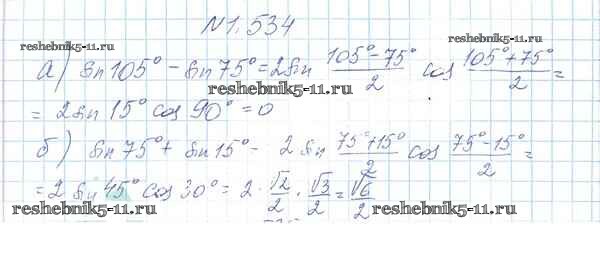 №1.534
reshebnik5-11.ru
reshebnik5-11.ru
а) sin 105° - sin 75° = 2 sin (105° - 75°)/2 cos (105° + 75°)/2 =
reshebnik5-11.ru
= 2 sin 15° cos 90° = 0
б) sin 75° + sin 15° - 2 sin (75° + 15°)/2 cos (75° - 15°)/2 =
= 2 sin 45° cos 30° = 2 · √2/2 · √3/2 = √6/2
reshebnik5-11.ru
reshebnik5-11.ru